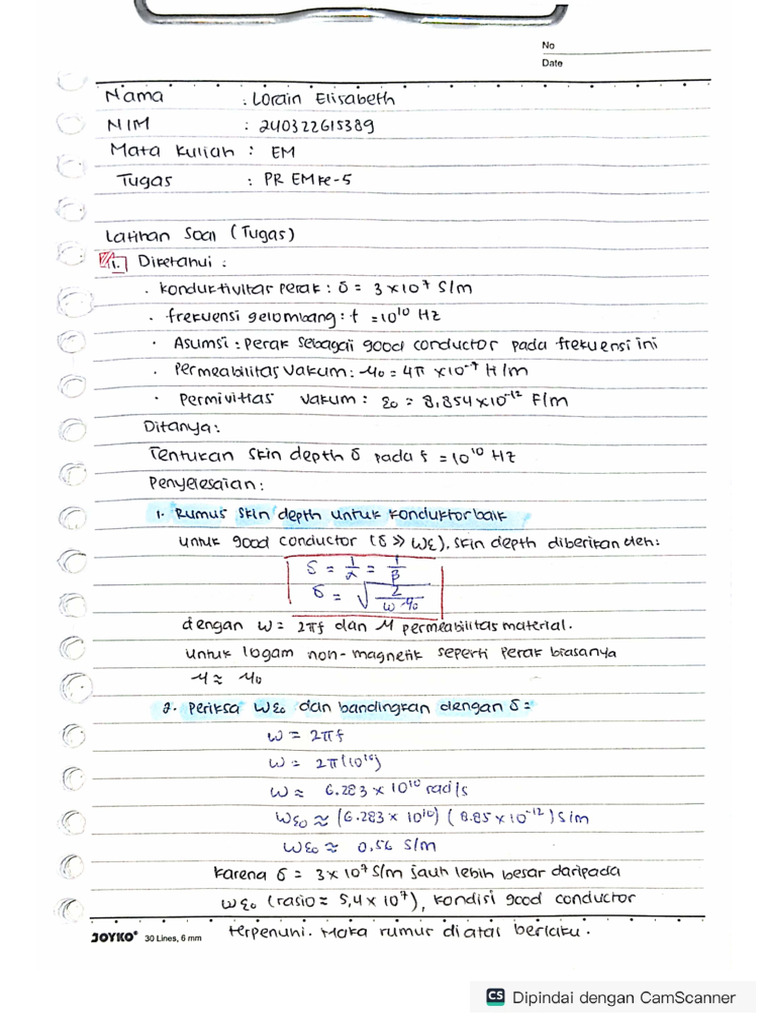 No
Date
Nama : Lorain Elisabeth
NIM : 240322615389
Mata Kuliah : EM
Tugas : PR EM ke-5
Latihan Soal (Tugas)
1. Diketahui :
· Konduktivitas perak : σ = 3 × 10⁷ S/m
· frekuensi gelombang : f = 10¹⁰ Hz
· Asumsi : perak sebagai good conductor pada frekuensi ini
· Permeabilitas vakum : μ₀ = 4π × 10⁻⁷ H/m
· Permivitias vakum : ε₀ = 8,854 × 10⁻¹² F/m
Ditanya :
Tentukan skin depth δ pada f = 10¹⁰ Hz
Penyelesaian :
1. Rumus skin depth untuk konduktor baik
untuk good conductor (σ ≫ ωε), skin depth diberikan oleh:
δ = 1/α = 1/β
δ = √(2/(ω μ₀))
dengan ω = 2πf dan μ permeabilitas material.
untuk logam non-magnetik seperti perak biasanya
μ ≈ μ₀
2. Periksa ωε₀ dan bandingkan dengan σ =
ω = 2πf
ω = 2π(10¹⁰)
ω ≈ 6.283 × 10¹⁰ rad/s
ωε₀ ≈ (6.283 × 10¹⁰) (8.85 × 10⁻¹²) S/m
ωε₀ ≈ 0,56 S/m
Karena σ = 3 × 10⁷ S/m jauh lebih besar daripada
ωε₀ (rasio ≈ 5,4 × 10⁷), kondisi good conductor
terpenuhi. Maka rumus di atas berlaku.
JOYKO® 30 Lines, 6 mm
CS Dipindai dengan CamScanner